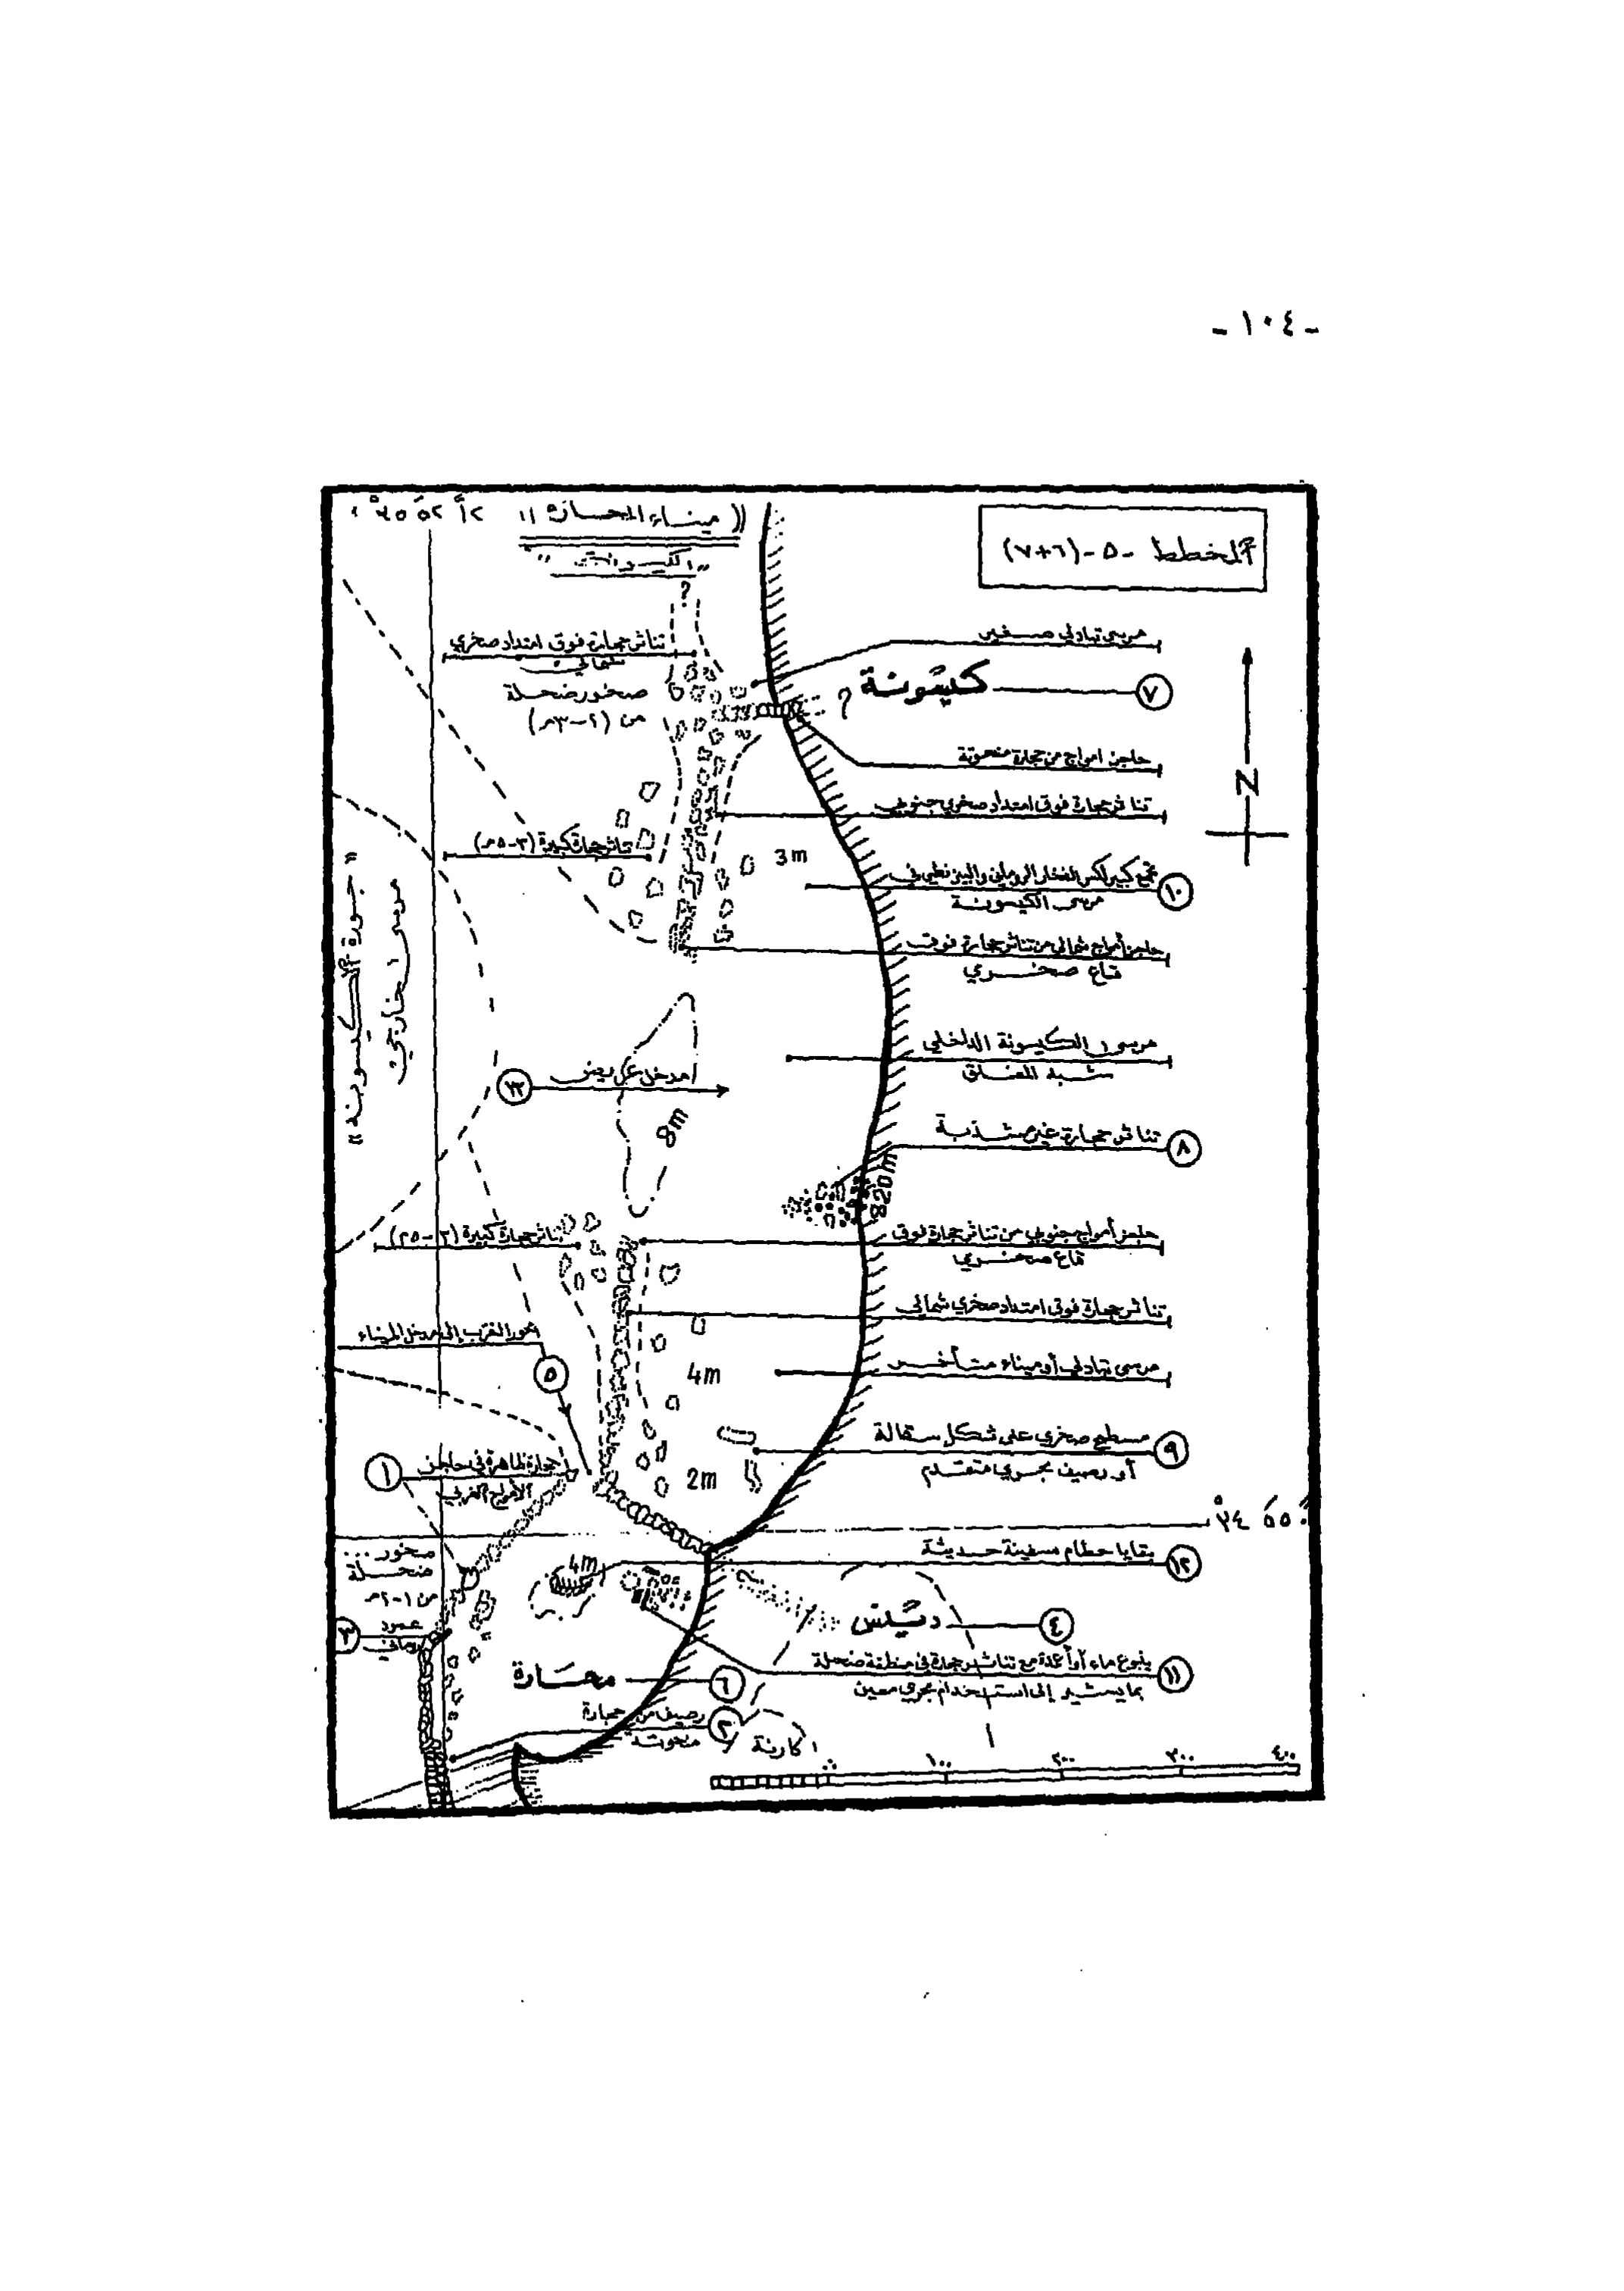 - ١٠٤ -
المخطط -٥-(٦+٧)
(( ميناء المحارة ))
مرسى تبادلي صغير
تناثر حجارة فوق امتداد صخري
شمالي
كيسونة
٧
صخور ضحلة
من (٢-٣م)
؟
?
حاجز امواج من حجارة منحوتة
N
تناثر حجارة فوق امتداد صخري جنوبي
تناثر حجارة كبيرة (٣-٥م)
3m
تجمع كبير لكسر الفخار الروماني والبيزنطي في
مرسى الكيسونة
١٠
حاجز أمواج شمالي من تناثر حجارة فوق
قاع صخري
"جورة الكيسونة"
مرسى خارجي
مرسى الكيسونة الداخلي
شبه المغلق
١٣
مدخل عريض
8m
تناثر حجارة غير مشذبة
٨
820m
حاجز أمواج جنوبي من تناثر حجارة فوق
قاع صخري
تناثر حجارة كبيرة
تناثر حجارة فوق امتداد صخري شمالي
إلى مدخل الميناء
٥
مرسى تبادلي أو ميناء متأخر
4m
مسطح صخري على شكل سقالة
أو رصيف بحري متقدم
٩
2m
١
حجارة ظاهرة في حاجز
الأمواج الغربي
بقايا حطام سفينة حديثة
١٢
4m
صخور ...
ضحلة
من ١-٢م
٣
عمود
روماني
٤
ينبوع ماء أو أعمدة مع تناثر حجارة في منطقة ضحلة
بما يشير إلى استخدام بحري معين
١١
محارة
٦
رصيف من حجارة
منحوتة
٢
١٠٠
٢٠٠
٣٠٠
٤٠٠